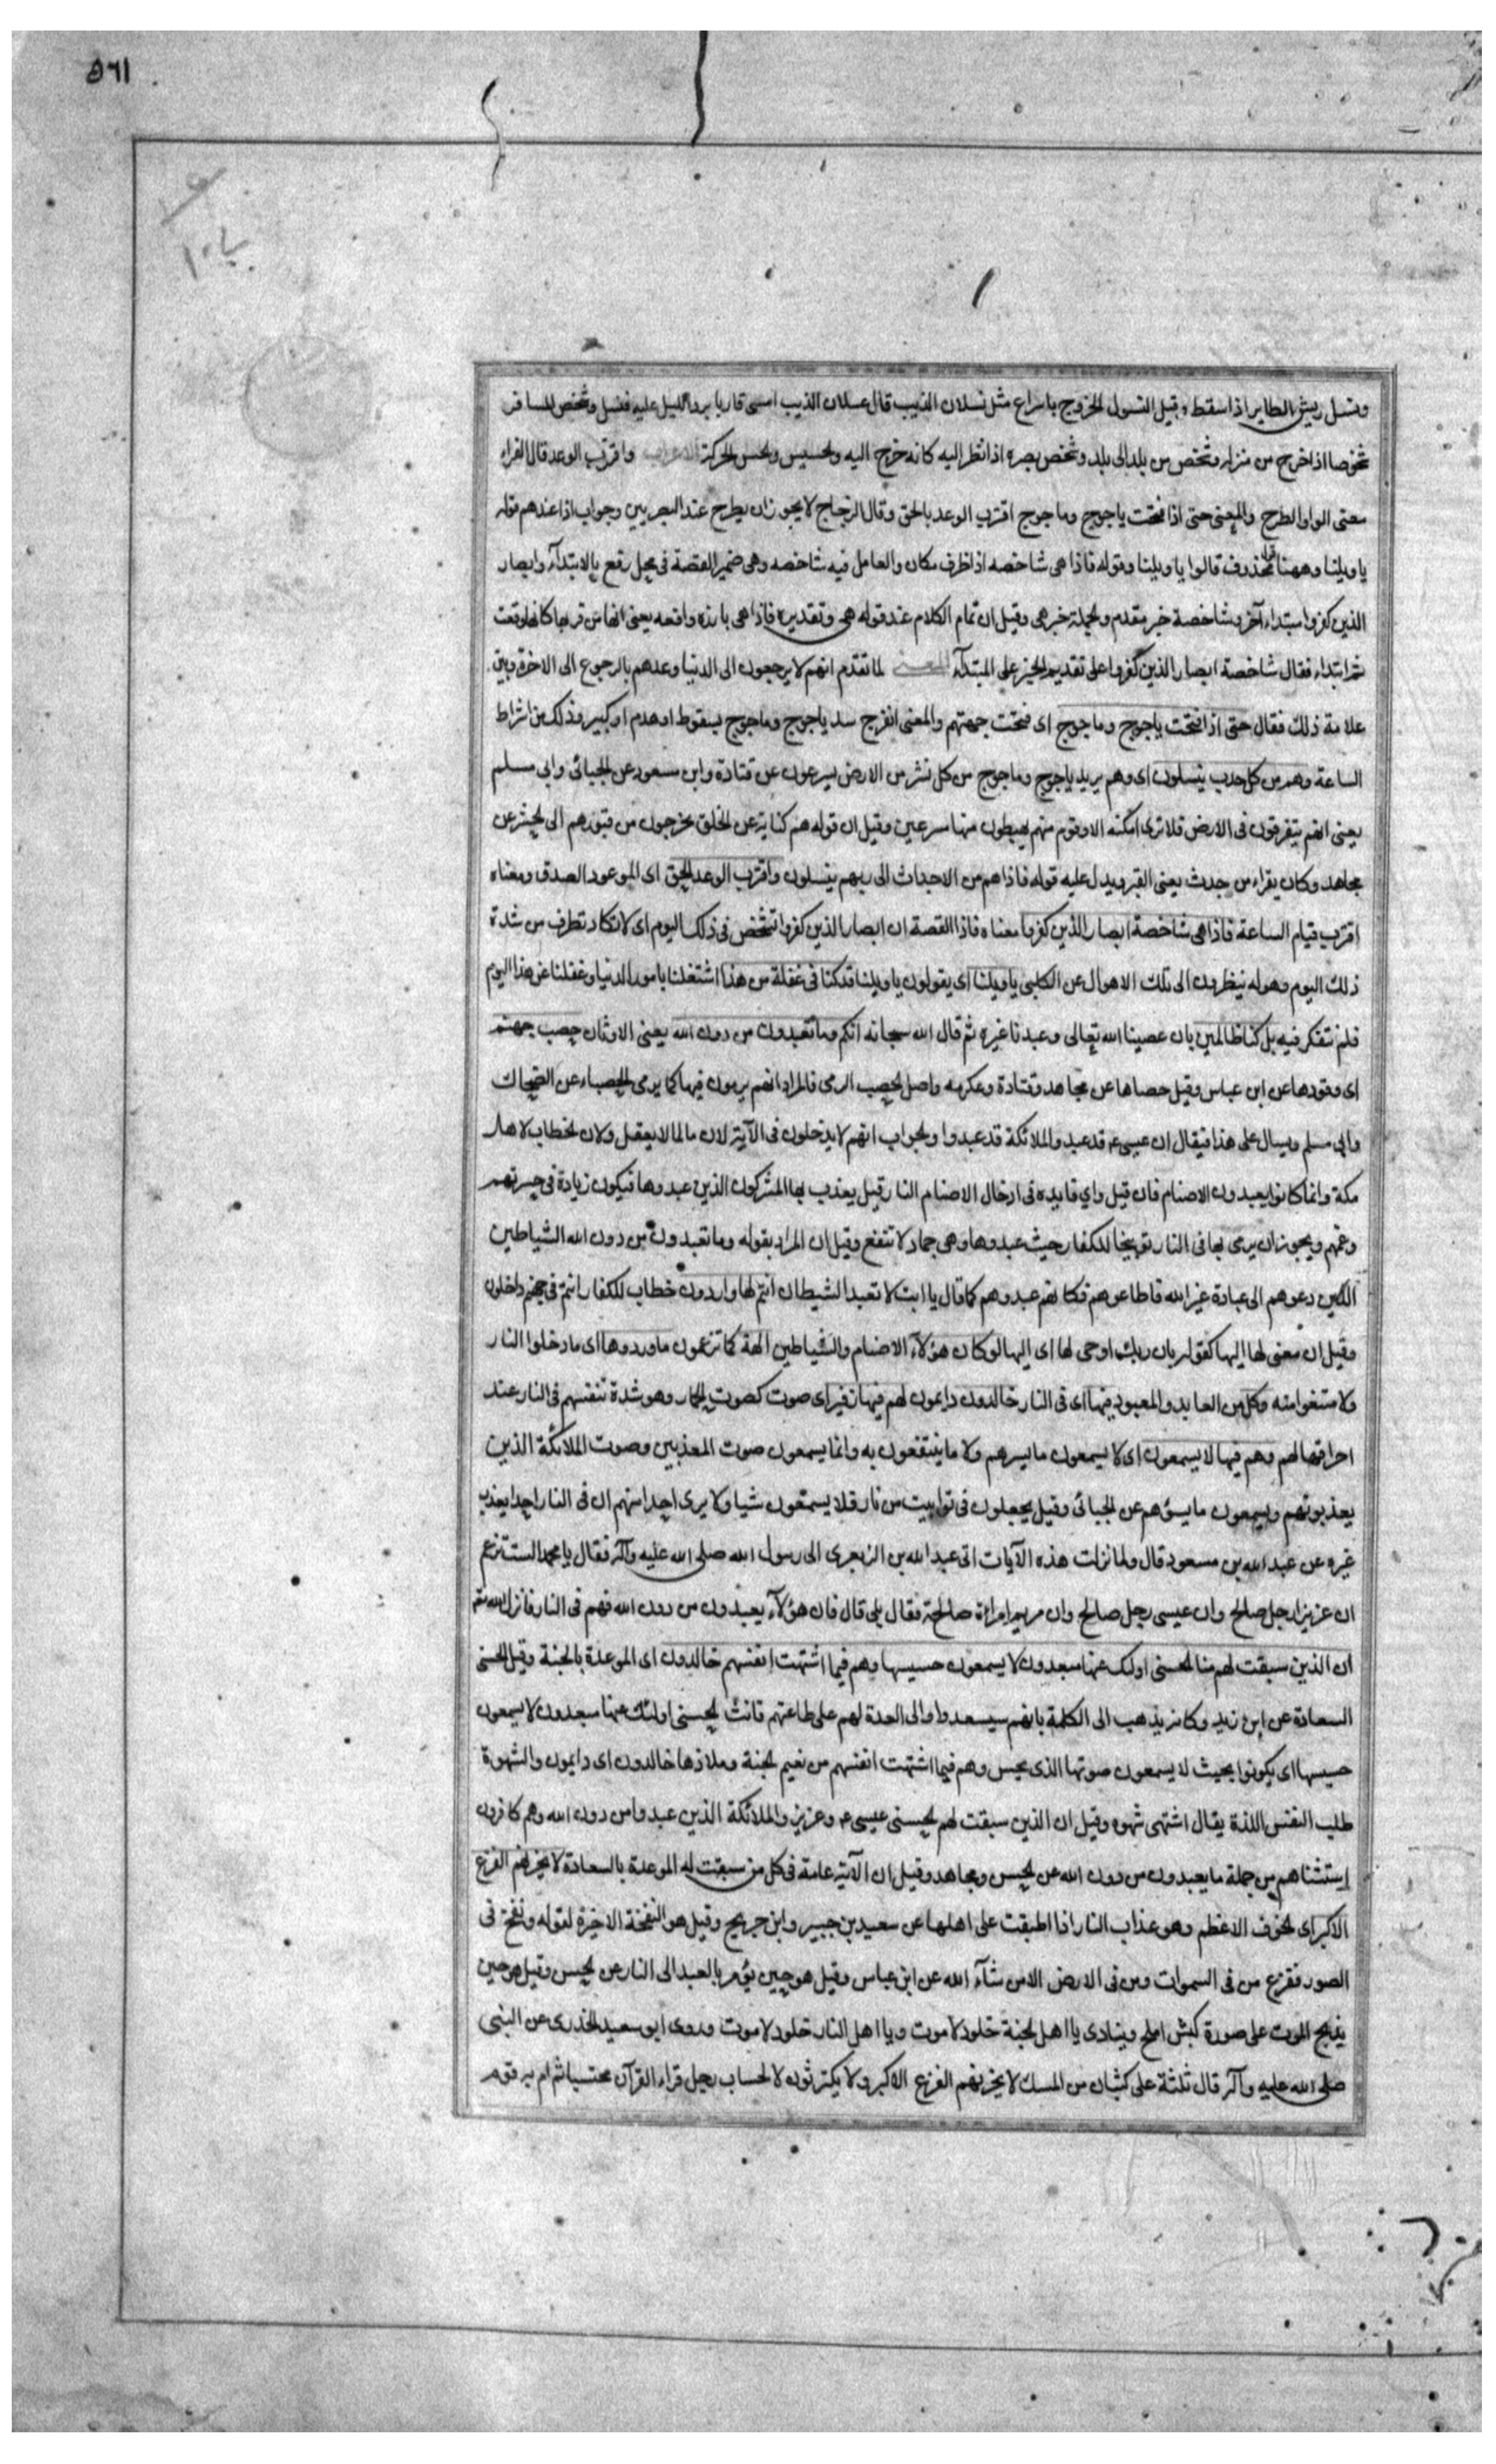 ٥٦١
ونسل ريش الطاير اذا سقط وقيل النسول الخروج باسراع مثل نسلان الذيب قال عسلان الذيب امسى قاربا برد الليل عليه فنسل وشخص المسافر
شخوصا اذا خرج من منزله وشخص من بلد الى بلد وشخص بصره اذا نظر اليه كانه خرج اليه والحسيس والحس الحركة الاعراب واقترب الوعد قال الفراء
معنى الواو الطرح والمعنى حتى اذا فتحت ياجوج وماجوج اقترب الوعد بالحق وقال الزجاج لا يجوز ان يطرح عند البصريين وجواب اذا عندهم قوله
يا ويلنا وههنا قول محذوف قالوا يا ويلنا وقوله فاذا هى شاخصه اذا ظرف مكان والعامل فيه شاخصه وهى ضمير القصة فى محل رفع بالابتدآء وابصار
الذين كفروا مبتداء آخر وشاخصة خبر مقدم والجملة خبر هى وقيل ان تمام الكلام عند قوله هى وتقديره فاذا هى بارزه واقعه يعنى انها من قربها كانها وقعت
ثم ابتداء فقال شاخصة ابصار الذين كفروا على تقديم الخبر على المبتدآء المعنى لما تقدم انهم لا يرجعون الى الدنيا وعدهم بالرجوع الى الاخرة وبين
علامة ذلك فقال حتى اذا فتحت ياجوج وماجوج اى فتحت جهتهم والمعنى انفرج سد ياجوج وماجوج بسقوط او هدم او كبير وذلك من اشراط
الساعة وهم من كل حدب ينسلون اى وهم يريد ياجوج وماجوج من كل نشز من الارض يسرعون عن قتادة وابن مسعود عن الجبائى وابي مسلم
يعنى انهم يتفرقون فى الارض فلا ترى اكمة الا وقوم منهم يهبطون منها مسرعين وقيل ان قوله هم كناية عن الخلق يخرجون من قبورهم الى المحشر عن
مجاهد وكان يقراء من جدث يعنى القبر ويدل عليه قوله فاذا هم من الاجداث الى ربهم ينسلون واقترب الوعد الحق اى الموعود الصدق ومعناه
اقترب قيام الساعة فاذا هى شاخصة ابصار الذين كفروا معناه فاذا القصة ان ابصار الذين كفروا تشخص فى ذلك اليوم اى لا تكاد تطرف من شدة
ذلك اليوم وهوله ينظرون الى تلك الاهوال عن الكلبى يا ويلنا اى يقولون يا ويلنا قد كنا فى غفلة من هذا اشتغلنا بامور الدنيا وغفلنا عن هذا اليوم
فلم نتفكر فيه بل كنا ظالمين بان عصينا الله تعالى وعبدنا غيره ثم قال الله سبحانه انكم وما تعبدون من دون الله يعنى الاوثان حصب جهنم
اى وقودها عن ابن عباس وقيل حصاها عن مجاهد وقتادة وعكرمه واصل الحصب الرمى فالمراد انهم يرمون فيها كما يرمى بالحصباء عن الضحاك
وابى مسلم ويسال على هذا فيقال ان عيسى ع قد عبد والملائكة قد عبدوا والجواب انهم لا يدخلون فى الآية لان ما لما لا يعقل ولان الخطاب لاهل
مكة وانما كانوا يعبدون الاصنام فان قيل واي فايده فى ادخال الاصنام النار قيل يعذب بها المشركون الذين عبدوها فيكون زيادة فى حسرتهم
وغمهم ويجوز ان يرمى بها فى النار توبيخا للكفار حيث عبدوها وهى جماد لا تنفع وقيل ان المراد بقوله وما تعبدون من دون الله الشياطين
الذين دعوهم الى عبادة غير الله فاطاعوهم فكانهم عبدوهم كما قال يا ابت لا تعبد الشيطان انتم لها واردون خطاب للكفار انتم فى جهنم داخلون
وقيل ان معنى لها اليها كقوله بان ربك اوحى لها اى اليها لو كان هؤلاء الاصنام والشياطين الهة كما تزعمون ما وردوها اى ما دخلوا النار
ولا متنعوا منه وكل من العابد والمعبود فيها اى فى النار خالدون دايمون لهم فيها زفير اى صوت كصوت الحمار وهو شدة تنفسهم فى النار عند
احراقها لهم وهم فيها لا يسمعون اى لا يسمعون ما يسرهم ولا ما ينتفعون به وانما يسمعون صوت المعذبين وصوت الملائكة الذين
يعذبونهم ويسمعون ما يسؤهم عن الجبائى وقيل يجعلون فى توابيت من نار فلا يسمعون شيا ولا يرى احدا منهم ان فى النار احدا يعذب
غيره عن عبد الله بن مسعود قال ولما نزلت هذه الآيات اتى عبد الله بن الزبعرى الى رسول الله صلى الله عليه وآله فقال يا محمد الست تزعم
ان عزيزا رجل صالح وان عيسى رجل صالح وان مريم امراة صالحة فقال بلى قال فان هؤلآء يعبدون من دون الله فهم فى النار فانزل الله تعم
ان الذين سبقت لهم منا الحسنى اولئك عنها مبعدون لا يسمعون حسيسها وهم فيما اشتهت انفسهم خالدون اى الموعدة بالجنة وقيل الحسنى
السعادة عن ابن زيد وكانه يذهب الى الكلمة بانهم سيسعدوا والى العدة لهم على طاعتهم فانث الحسنى اولئك عنها مبعدون لا يسمعون
حسيسها اى يكونوا بحيث لا يسمعون صوتها الذى يحس وهم فيما اشتهت انفسهم من نعيم الجنة وملاذها خالدون اى دايمون والشهوة
طلب النفس اللذة يقال اشتهى شهوه وقيل ان الذين سبقت لهم الحسنى عيسى ع وعزيز والملائكة الذين عبدوا من دون الله وهم كارهون
استثناهم من جملة ما يعبدون من دون الله عن الحسن ومجاهد وقيل ان الآية عامة فى كل من سبقت له الموعدة بالسعادة لا يحزنهم الفزع
الاكبر اى الخوف الاعظم وهو عذاب النار اذا اطبقت على اهلها عن سعيد بن جبير وابن جريح وقيل هو النفخة الاخيرة لقوله ونفخ فى
الصور ففزع من فى السموات ومن فى الارض الا من شآء الله عن ابن عباس وقيل هو حين يؤمر بالعبد الى النار عن الحسن وقيل هو حين
يذبح الموت على صورة كبش املح وينادى يا اهل الجنة خلود لا موت ويا اهل النار خلود لا موت وروى ابو سعيد الخدرى عن النبى
صلى الله عليه وآله قال ثلثة على كثبان من المسك لا يحزنهم الفزع الاكبر ولا يكترثون لالحساب رجل قراء القرآن محتسبا ثم ام به قوم